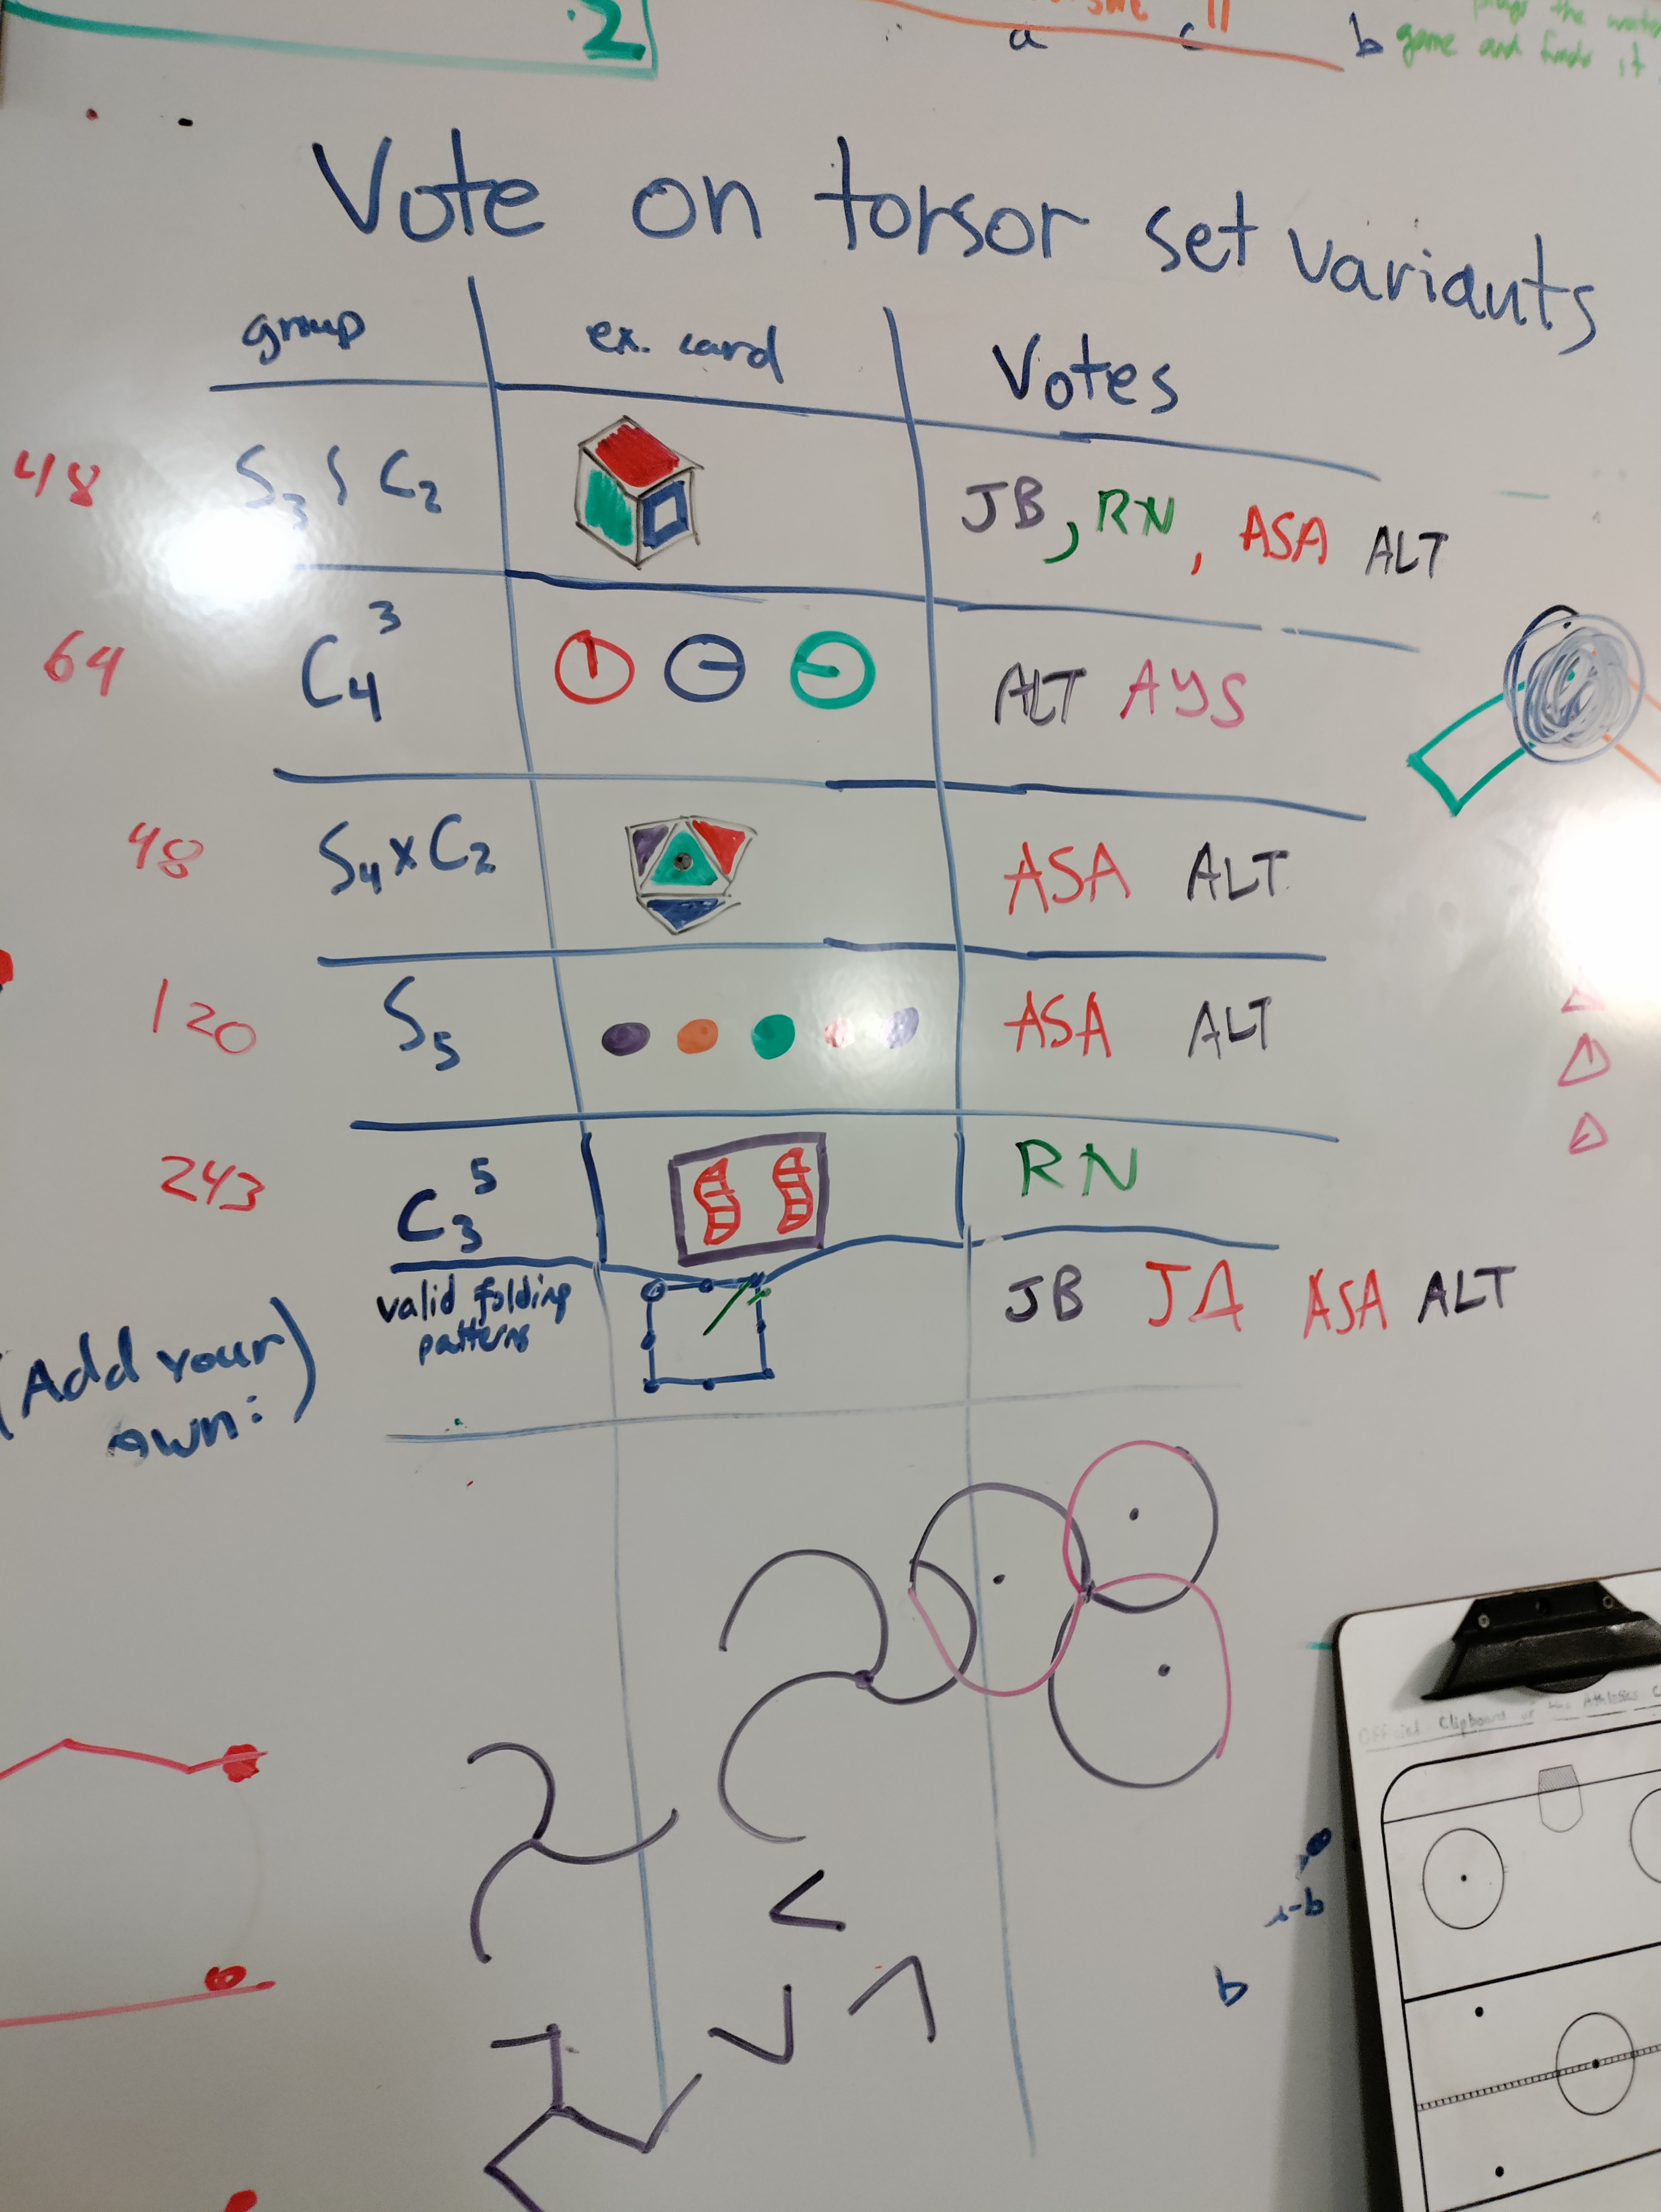 .2
a c b
game and finds it
Vote on torsor set variants
group ex. card Votes
48 S₃ ≀ C₂ JB, RN, ASA ALT
64 C₄³ ALT AYS
48 S₄ x C₂ ASA ALT
120 S₅ ASA ALT
243 C₃⁵ RN
valid folding patterns JB JA ASA ALT
(Add your own:)
Official Clipboard of